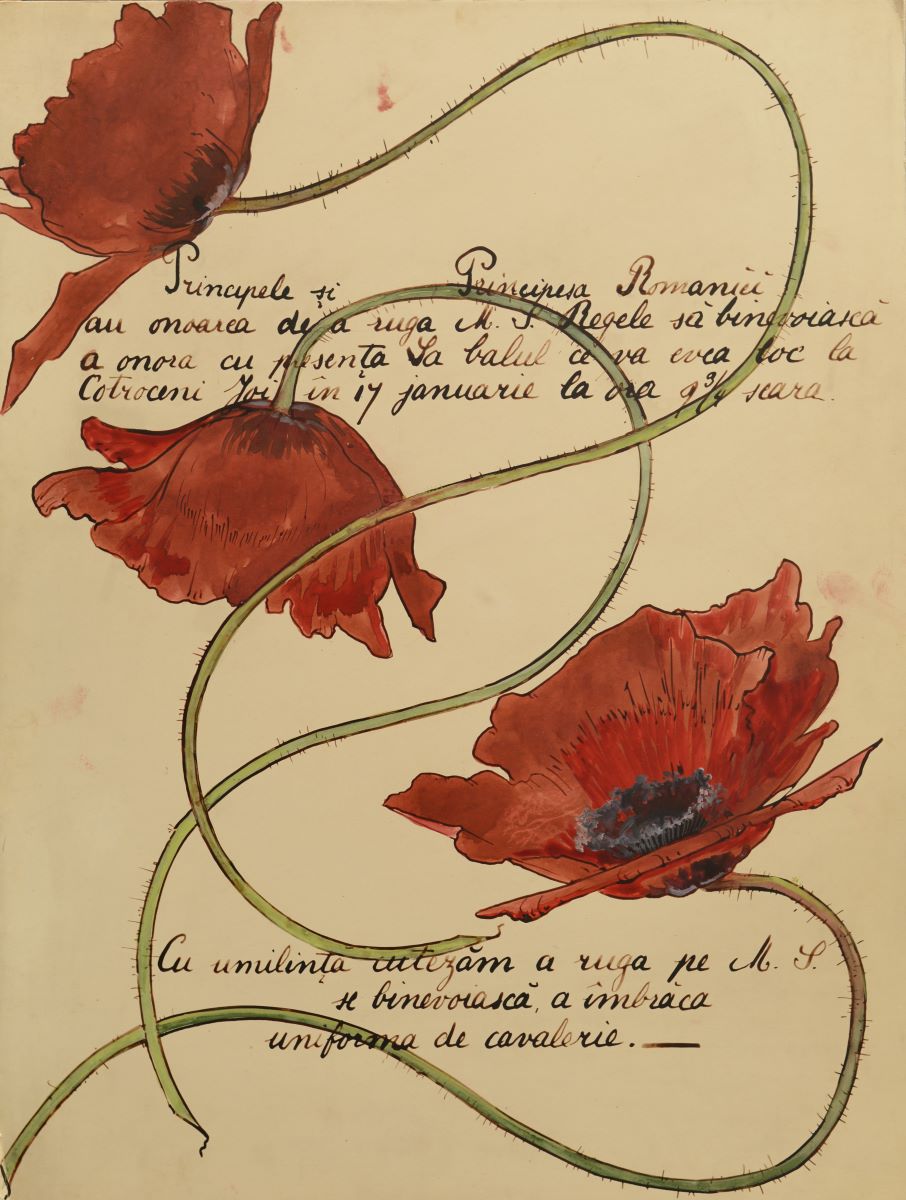 Principele și Principesa Romaniei
au onoarea de a ruga M. S. Regele să binevoiască
a onora cu presența Sa balul ce va avea loc la
Cotroceni Joi în 17 januarie la ora 9 3/4 seara.
Cu umilință cutezăm a ruga pe M. S.
se binevoiască, a îmbrăca
uniforma de cavalerie. —